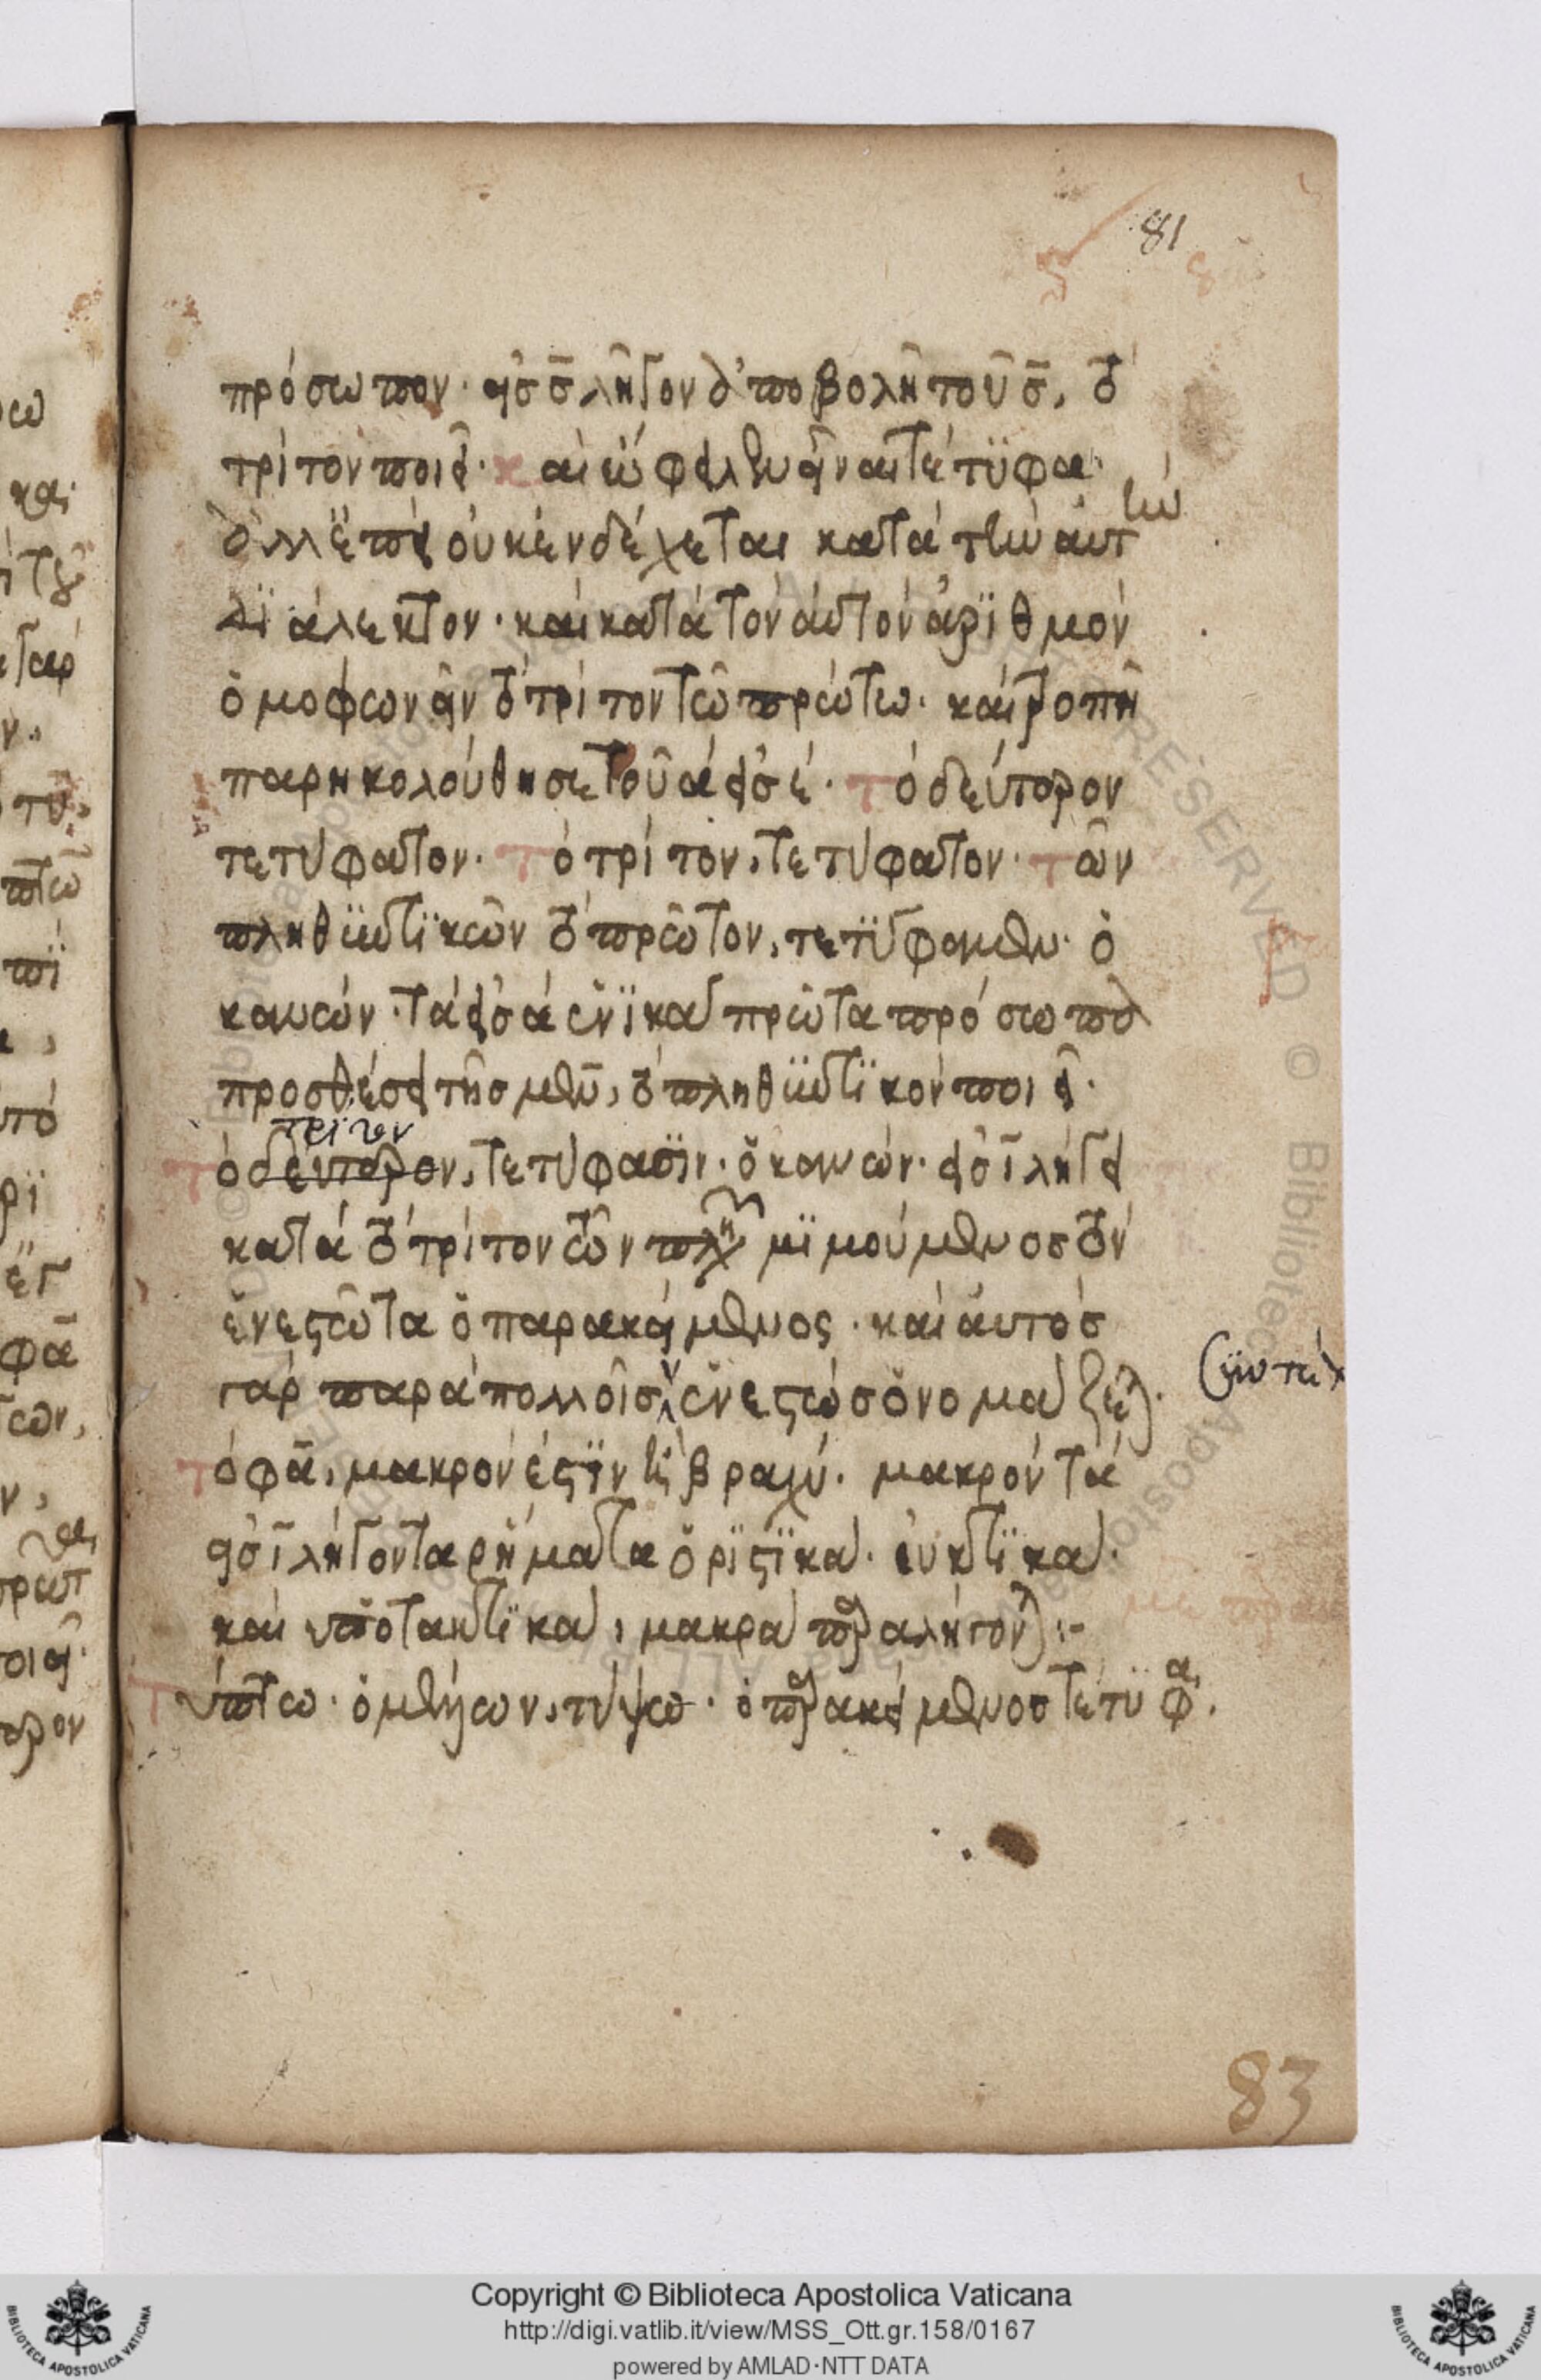 81
πρόσωπον· εἰς ς̄ λῆγον ἀποβολῆ τοῦ ς̄, τὸ
τρίτον ποιεῖ· καὶ ὤφειλεν εἶναι τέτυφε·
ἀλλ' ἐπεὶ οὐκ ἐνδέχεται κατὰ τὴν αὐτὴν
διάλεκτον· καὶ κατὰ τὸν αὐτὸν ἀριθμὸν
ὁμοφωνεῖν τὸ τρίτον τῶ πρώτω· καὶ τροπὴ
παρηκολούθησε τοῦ α εἰς ε· τὸ δεύτερον
τετύφατον· τὸ τρίτον, τετύφατον· τῶν
πληθυντικῶν τὸ πρῶτον, τετύφαμεν· ὁ
κανών· τὰ εἰς α ἑνικὰ πρῶτα πρόσωπα
προσθέσει τῆς μεν, τὸ πληθυντικὸν ποιεῖ·
τρίτον
τὸ δεύτερον, τετύφασιν· ὁ κανών· εἰς ῑ λήγει
κατὰ τὸ τρίτον τῶν πλη μιμούμενος τὸν
ἐνεστῶτα ὁ παρακείμενος· καὶ αὐτὸς
γὰρ παρὰ πολλοῖς ἐνεστὼς ὀνομάζεται·
συντελ
τὸ φᾱ, μακρόν ἐστιν ἢ βραχύ· μακρὸν τὰ
εἰς ῑ λήγοντα ῥήματα ὁριστικά· εὐκτικά·
καὶ ὑποτακτικά, μακρᾶ παραλήγονται:-
τύπτω· ὁ μέλλων, τύψω· ὁ παρακείμενος τέτυφα·
83
Copyright © Biblioteca Apostolica Vaticana
http://digi.vatlib.it/view/MSS_Ott.gr.158/0167
powered by AMLAD·NTT DATA